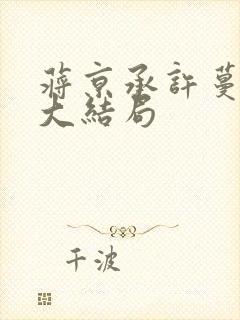 蒋京承许蔓
大结局
千波